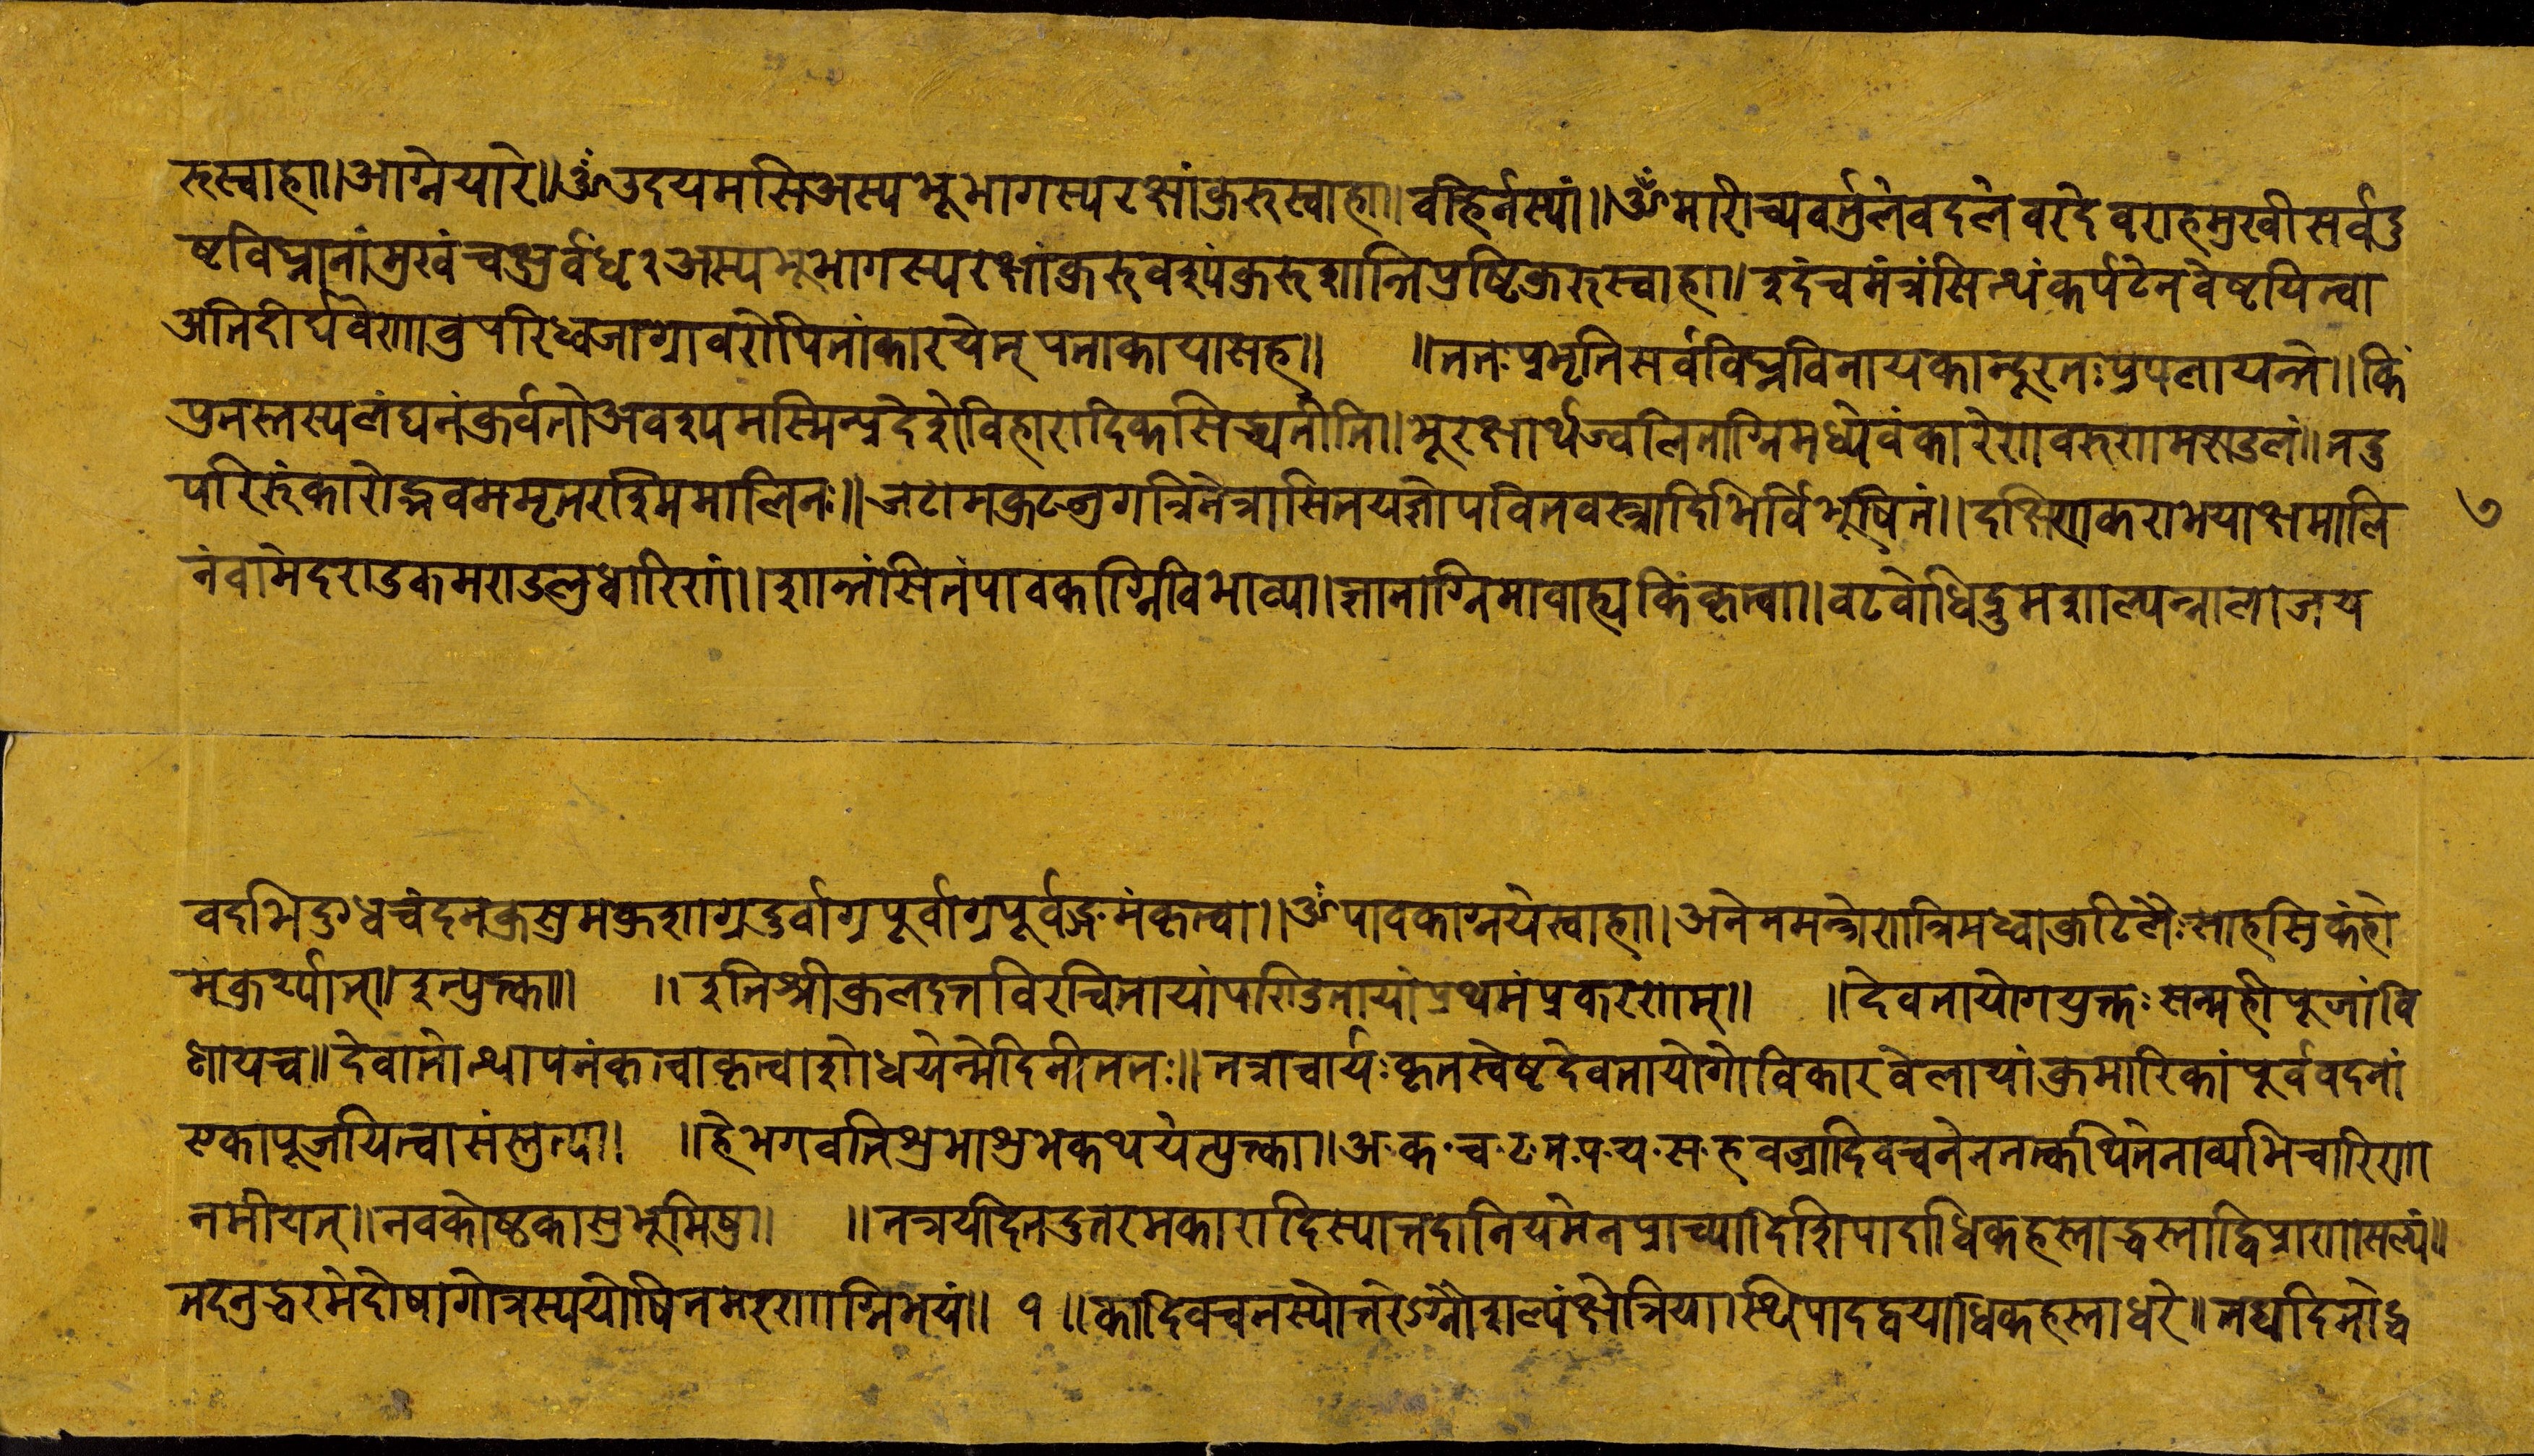 रुस्वाहा॥आग्नेयारे॥ॐउदयमसिअस्यभूभागस्यरक्षांकुरुस्वाहा॥वह्निर्नस्यां॥ॐमारीच्यवर्तुलेवदलेवरदेवराहमुखीसर्वदु
ष्टविघ्नानांमुखंचक्षुर्वंध२अस्यभूभागस्यरक्षांकुरुवरुपंकुरुशान्तिपुष्टिकुरुस्वाहा॥इदंचमंत्रंसित्थंकर्पटेनवेष्टयित्वा
अतिदीर्घवेणावुपरिध्वजाग्रावरोपितांकारयेत्पताकायासह॥ ॥ततःप्रभृतिसर्वविघ्नविनायकान्दूरतःप्रपलायन्ते॥किं
पुनस्तस्यलंघनंकुर्वतोअवश्यमस्मिन्प्रदेशेविहारादिकंसिद्ध्यतीति॥भूरक्षार्थंज्वलिताग्निमध्येवंकारेणवरुणमण्डलं॥तदु
परिरुंकारोद्भवममृतरश्मिमालिनः॥जटामकुटञगत्रिनेत्रासितयज्ञोपवितवस्त्रादिभिर्विभूषितं॥दक्षिणकराभयाक्षमालि
७
नंवामेदण्डकमण्डलुधारिणं॥शान्तंसितंपावकाग्निविभाव्य॥ज्ञानाग्निमावाह्यकिंकृत्वा॥वटबोधिद्रुमशाल्पन्नालाजय
वदभिदुग्धचंदनकुसुमकुशाग्रदुर्वाग्रपूर्वाग्रपूर्वङ्गमंकृत्वा॥ॐपावकाग्नयेस्वाहा॥अनेनमन्त्रेणत्रिमध्वाकुटिलैःसाहस्रिकंहो
मंकुर्यात्॥इत्युक्त॥ ॥इतिश्रीकुलदत्तविरचितायांपण्डितायांप्रथमंप्रकरणम्॥ ॥देवतायोगयुक्तःसन्महीपूजांवि
धायच॥देवातोत्थापनंकृत्वाकृत्वाशोधयेन्मेदिनीततः॥तत्राचार्यःकृतस्वेष्टदेवतायोगोविकारवेलायांकुमारिकांपूर्ववदनां
एकापूजयित्वासंस्तुत्य॥ ॥हेभगवतिशुभाशुभकथयेत्युक्त्वा॥अ॰क॰च॰ट॰त॰प॰य॰स॰हवज्रादिवचनेनतत्कथितेनाव्यभिचारिणा
नमीयत्॥नवकोष्ठकासुभूमिषु॥ ॥तत्रयदितदुत्तरमकारादिस्यात्तदानियमेनप्राच्यादिशिपादाधिकहस्ताद्धस्ताद्विप्राणांसल्यं॥
तदनुद्धरमेदोषागोत्रस्ययोषितमरणाग्निभयं॥१॥कादिवचनस्योत्तरेऽग्नौशल्यंक्षेत्रियास्थिपादद्वयाधिकहस्ताधरे॥तद्यदितोद्ध